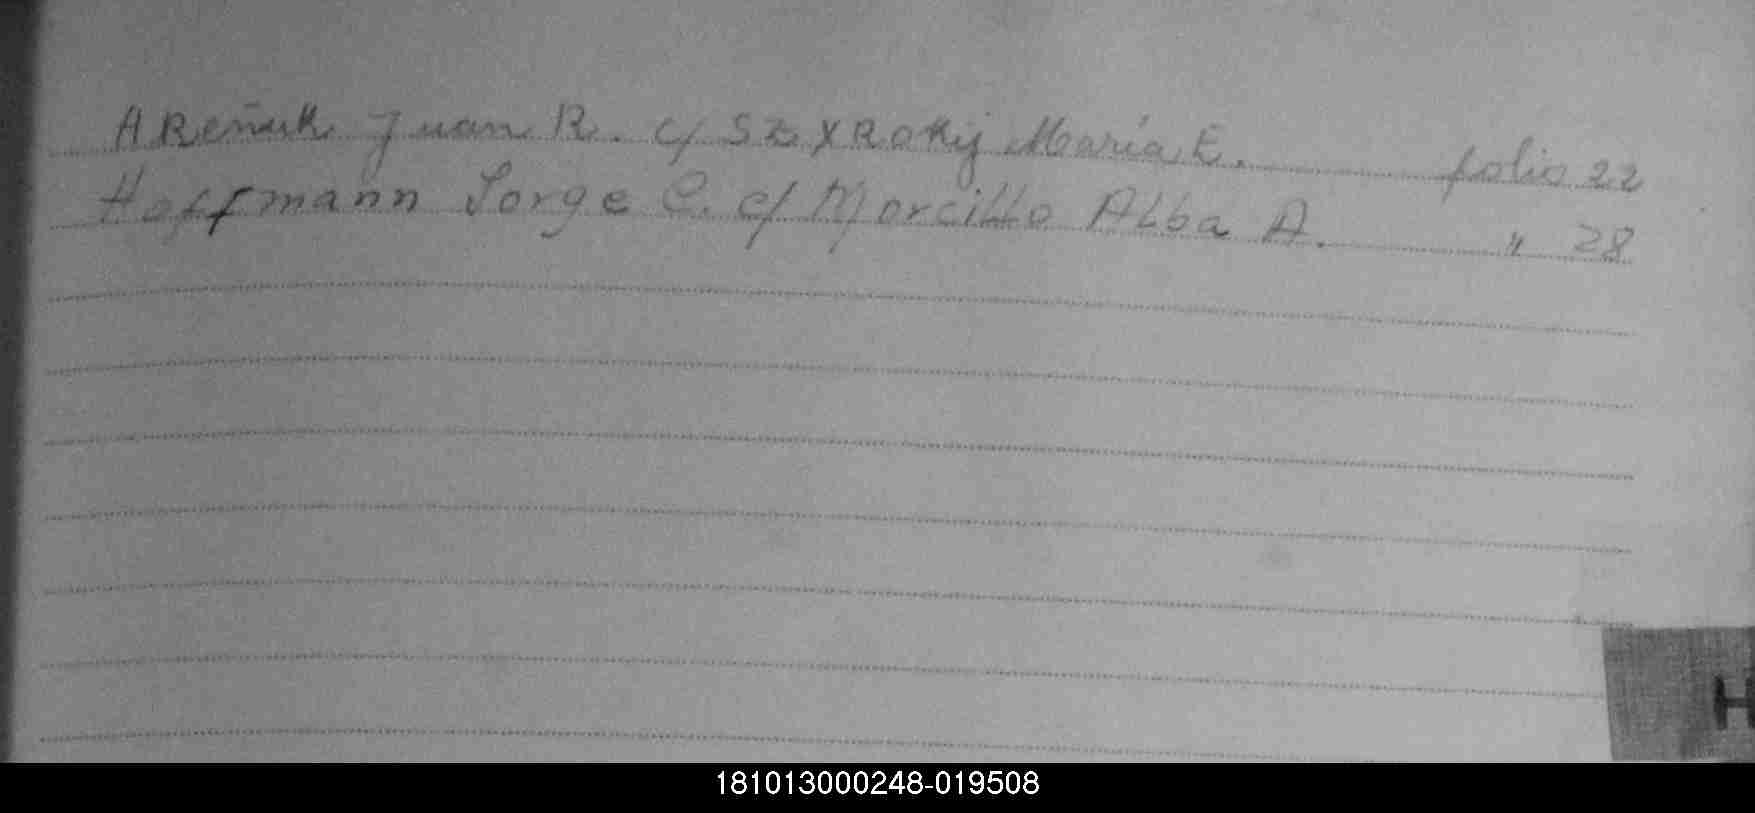 HReñuk Juan R. c/ SZYROKIJ María E. folio 22
Hoffmann Jorge C. c/ Morcillo Alba A. " 28
H
181013000248-019508